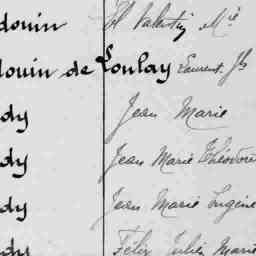 douin Fl Valentin Mie
douin de Loulay Laurent Jh
dy Jean Marie
dy Jean Marie Théodore
dy Jean Marie Eugène
dy Félix Jules Marie